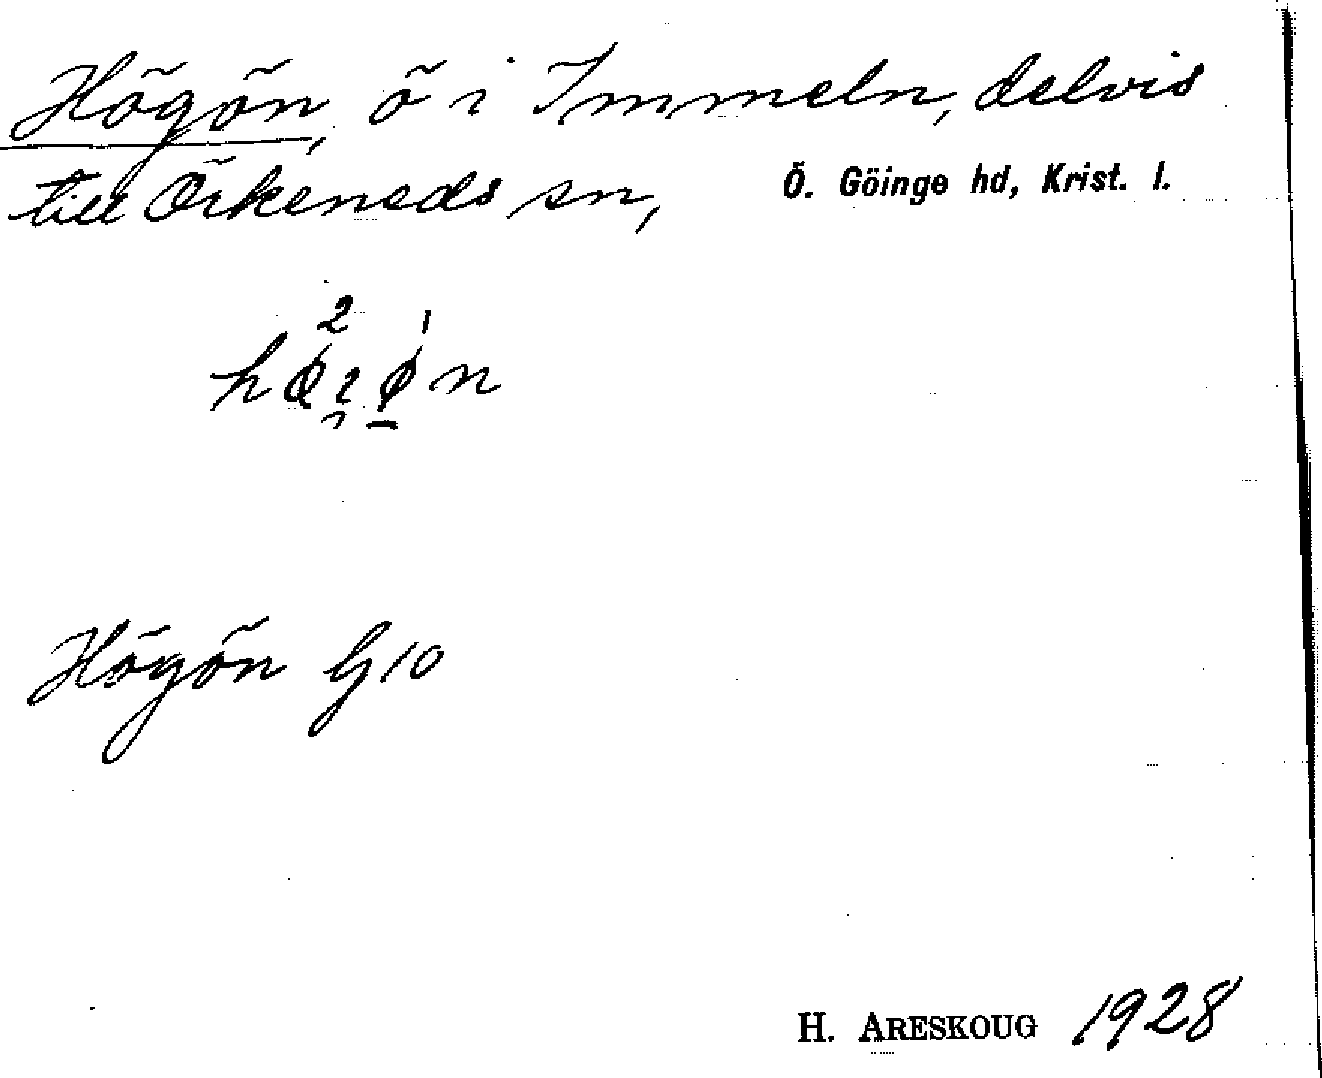 Högön, ö i Immeln, delvis
till Örkeneds sn, Ö. Göinge hd, Krist. l.
Högön G10
H. ARESKOUG 1928